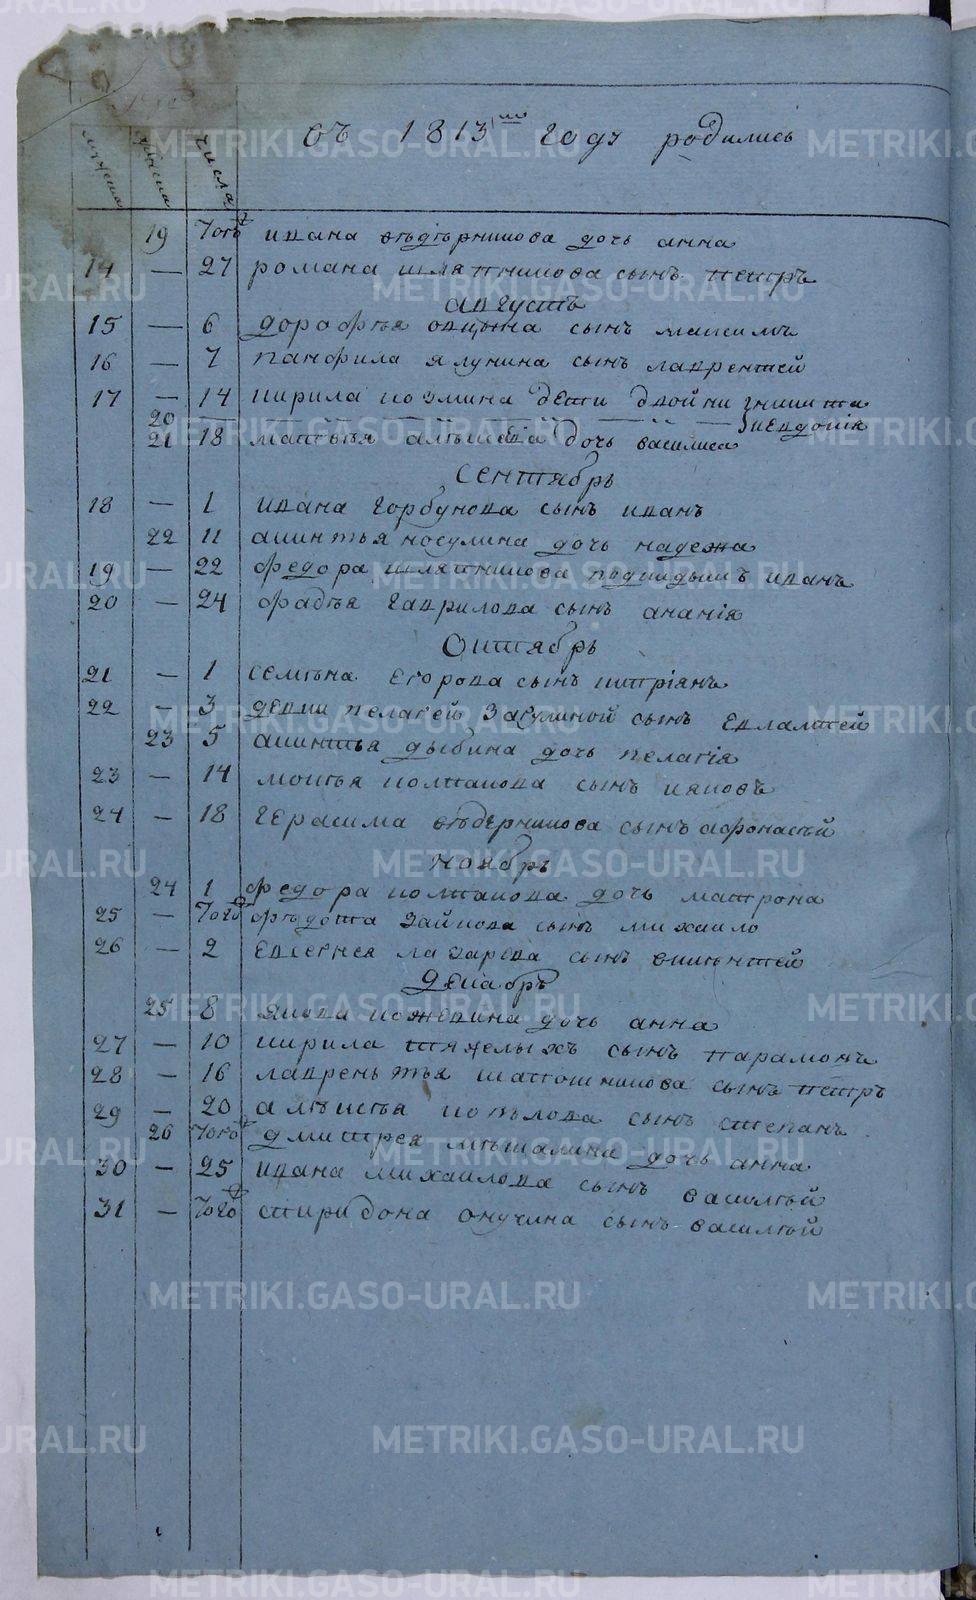 въ 1813 мъ году родились
мужеска женска числа
19 Тогож ивана вѣдѣрникова дочь анна
14 — 27 романа шляпникова сынъ петръ
августъ
15 — 6 дорофѣя овцына сынъ максимъ
16 — 7 панфила ялунина сынъ лаврентей
17 — 14 кирила козмина дети двойни никита
20 иевдокия
21 18 матвѣя дочь василиса
Сентябрь
18 — 1 ивана горбунова сынъ иванъ
22 11 акинтья носулина дочь надежа
19 — 22 федора шляпникова подкидышъ иванъ
20 — 24 фадѣя гаврилова сынъ ананія
Октябрь
21 — 1 семѣна егорова сынъ кипріянъ
22 — 3 девки пелагеи засулиной сынъ евламтей
23 5 акинтья дыбина дочь пелагія
23 — 14 мокѣя потапова сынъ ияковъ
24 — 18 герасима вѣдерникова сынъ афонасѣй
ноябрь
24 1 федора потапова дочь матрона
25 — Того ж фѣдота зайкова сынъ михаило
26 — 2 евсегнея лазарева сынъ викентей
декабръ
25 8 якова кожевина дочь анна
27 — 10 кирила тяжелыхъ сынъ парамонъ
28 — 16 лаврентья шапошникова сынъ петръ
29 — 20 алѣксѣя копылова сынъ степанъ
26 Тогож дмитрея мѣшалкина дочь анна
30 — 25 ивана михаилова сынъ василѣй
31 — Того ж спиридона онучина сынъ василѣй
METRIKI.GASO-URAL.RU